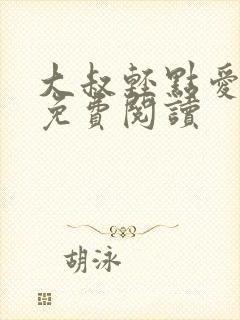 大叔輕點愛
免費閱讀
胡泳